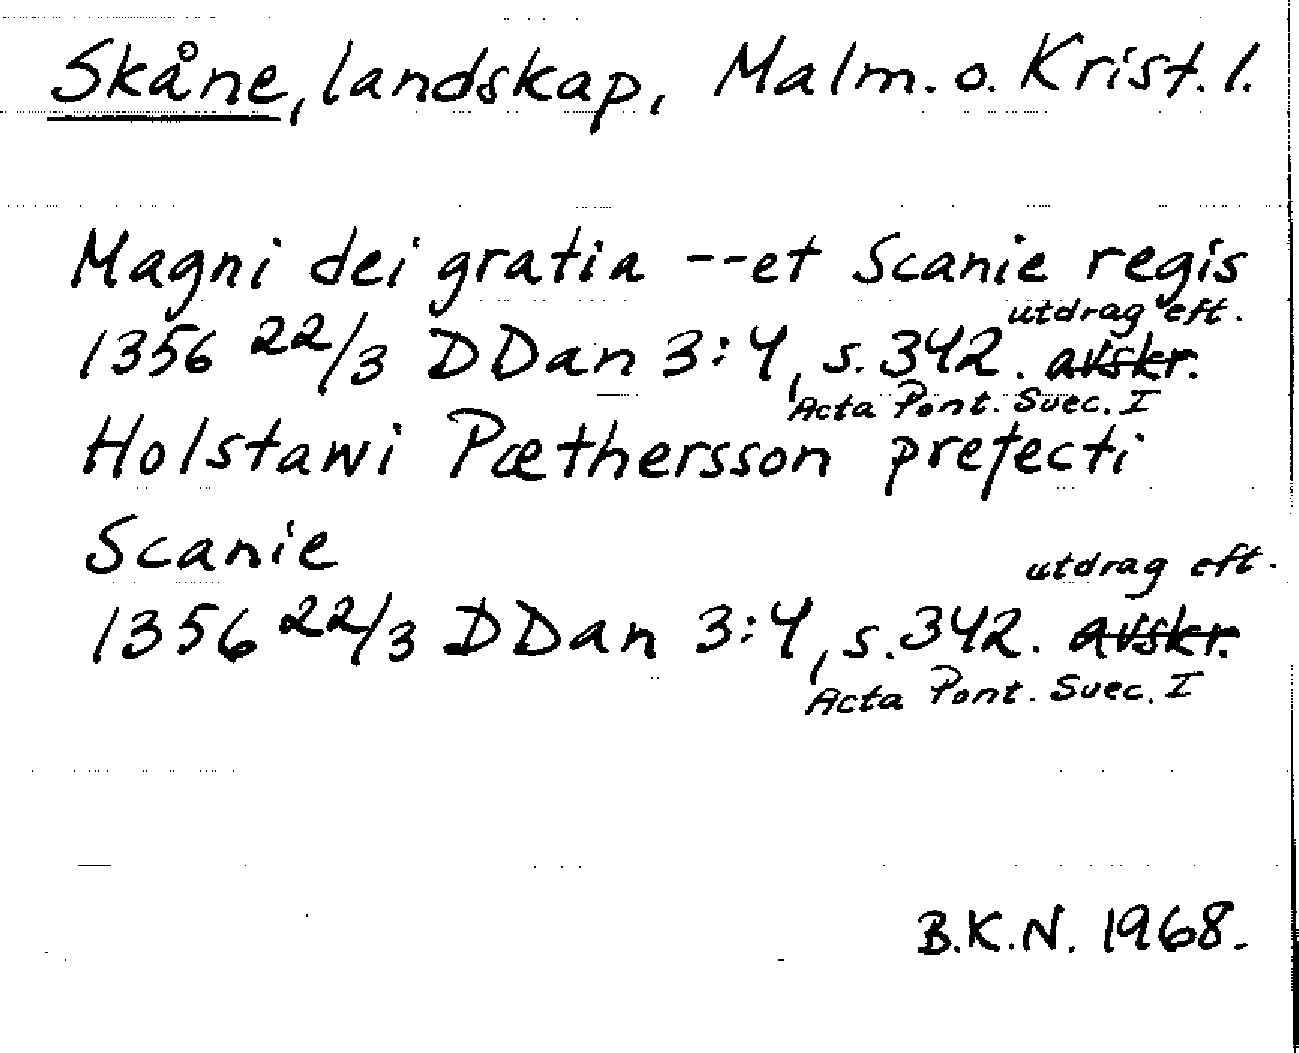 Skåne, landskap, Malm. o. Krist. l.
Magni dei gratia -- et Scanie regis
utdrag eft.
1356 22/3 DDan 3:4, s. 342. avskr.
Acta Pont. Suec. I
Holstawi Pæthersson prefecti
Scanie
utdrag eft.
1356 22/3 DDan 3:4, s. 342. avskr.
Acta Pont. Suec. I
B.K.N. 1968.